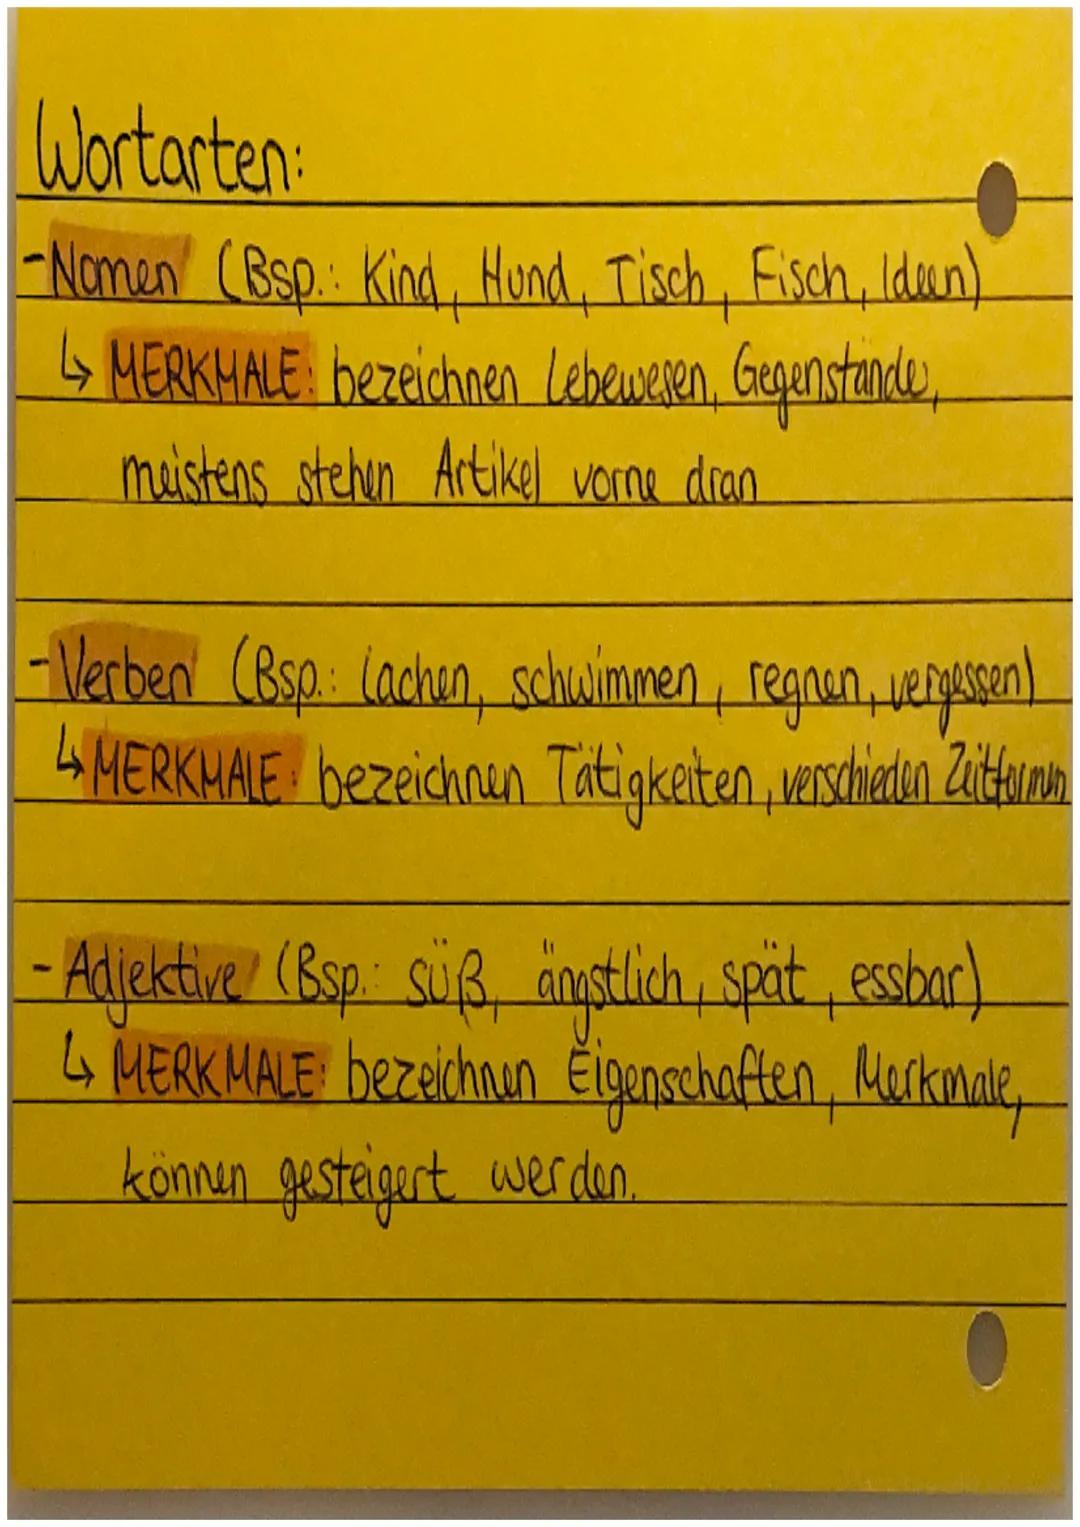 Wortarten:
-Nomen (Bsp.: Kind, Hund, Tisch, Fisch, Ideen)
↳ MERKMALE: bezeichnen Lebewesen, Gegenstände,
meistens stehen Artikel vorne dran
-Verben (Bsp.: lachen, schwimmen, regnen, vergessen)
↳ MERKMALE: bezeichnen Tätigkeiten, verschieden Zeitformen
- Adjektive (Bsp.: süß, ängstlich, spät, essbar)
↳ MERKMALE: bezeichnen Eigenschaften, Merkmale,
können gesteigert werden.